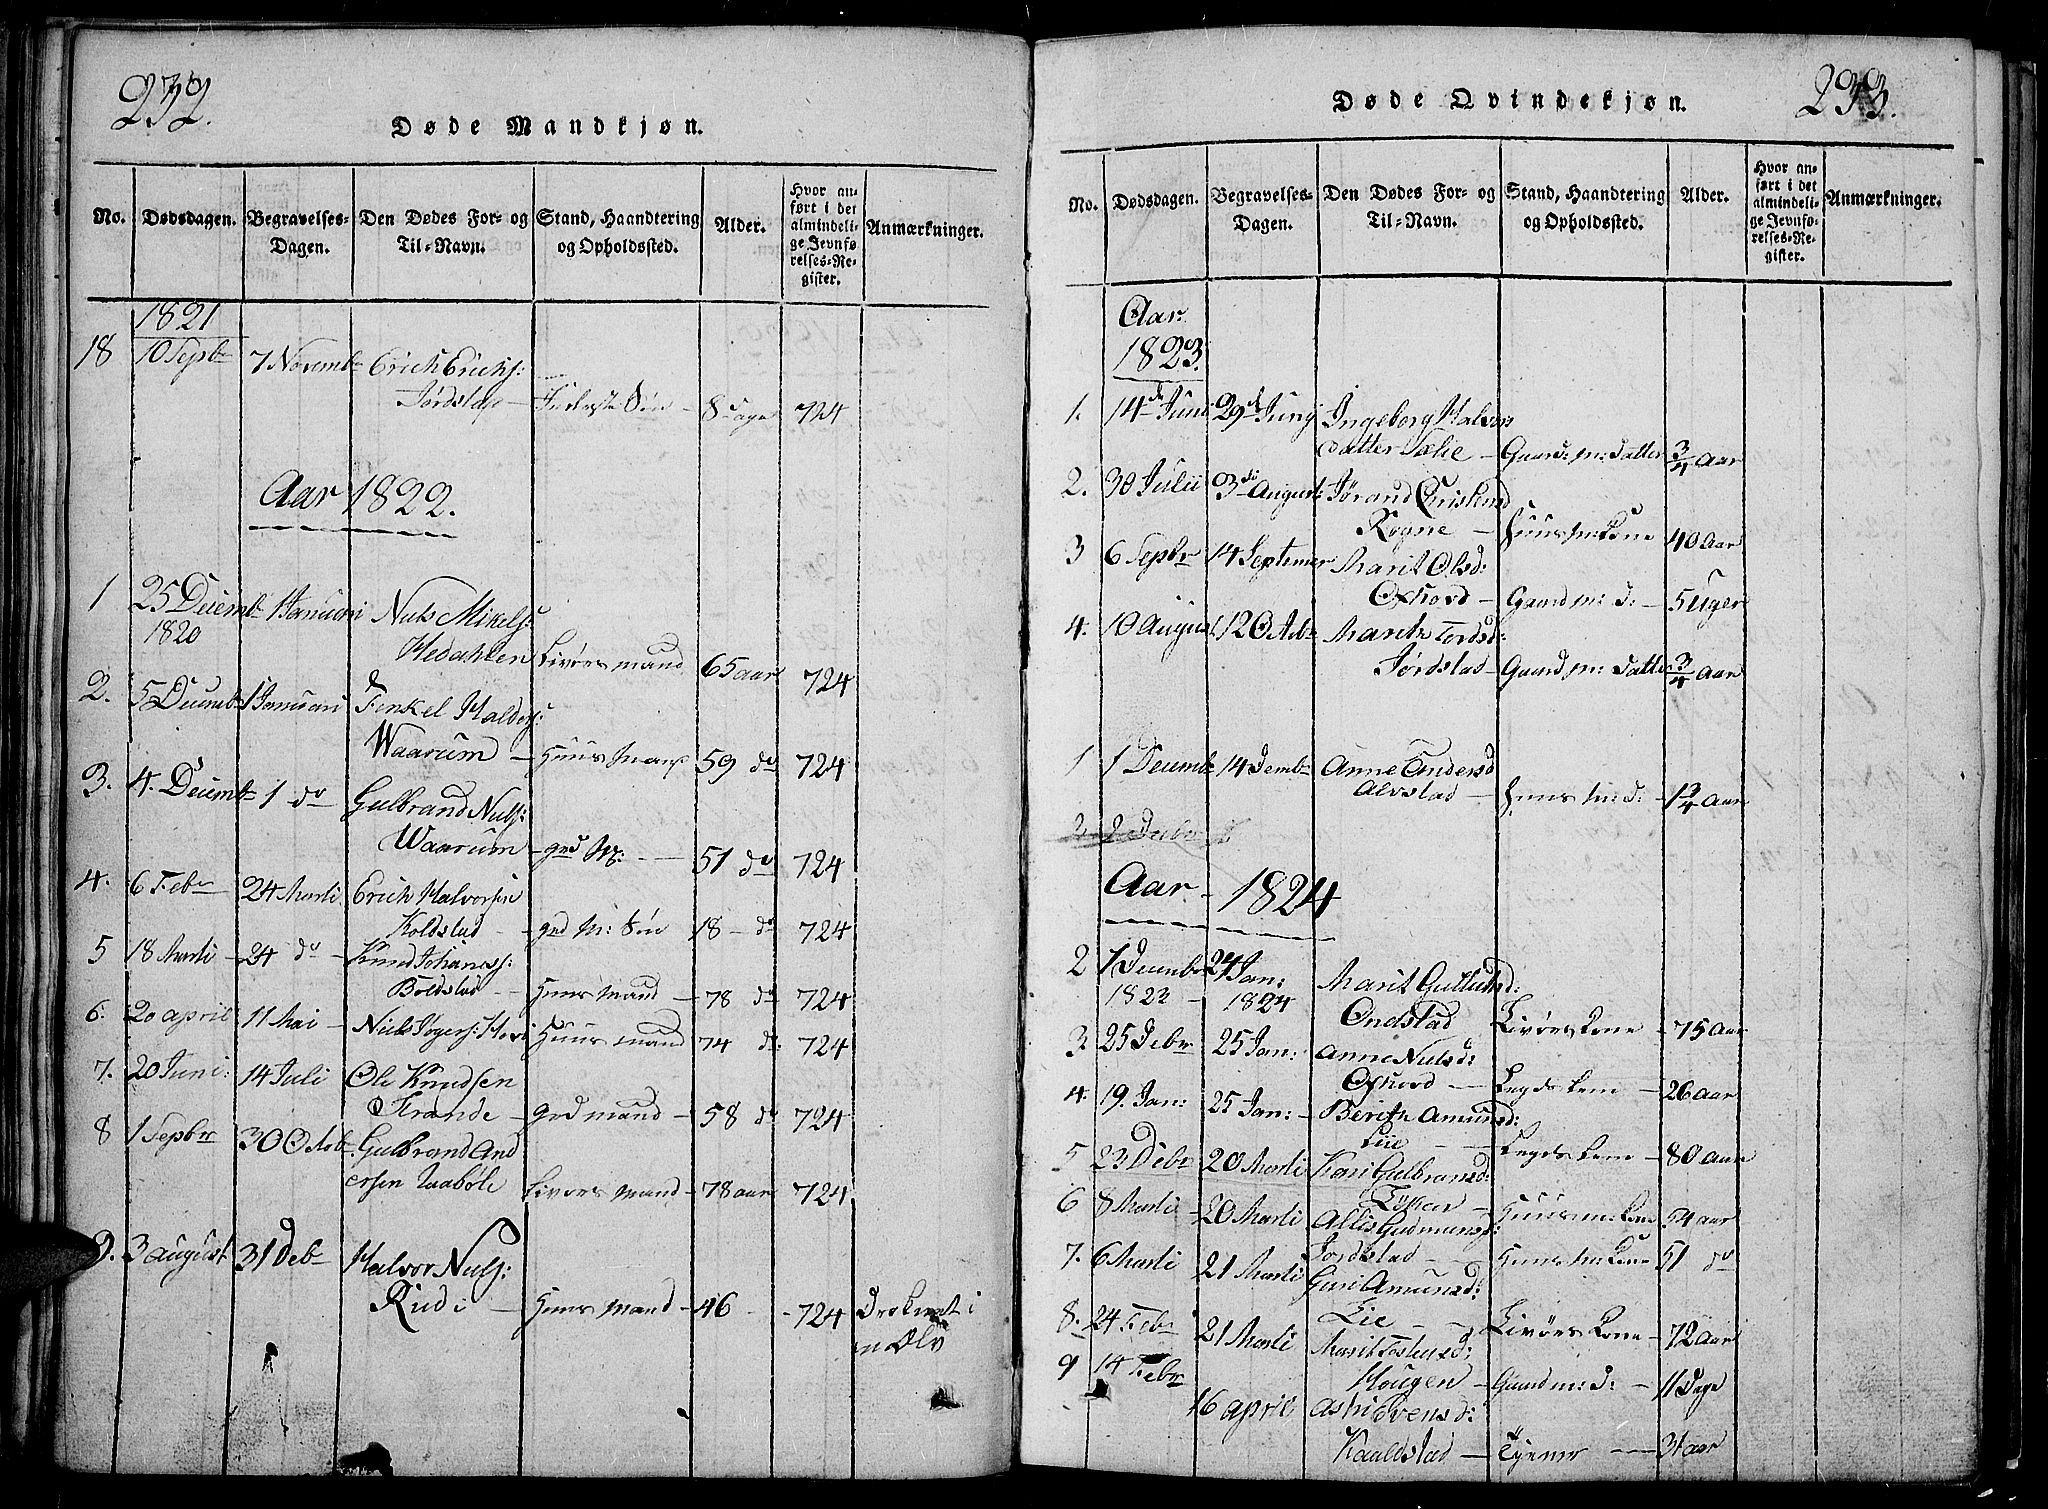 232.
Døde Mandkjøn.
No.
Dødsdagen.
Begravelses-Dagen.
Den Dødes For- og Til-Navn.
Stand, Haandtering og Opholdssted.
Alder.
Hvor anført i det almindelige Jevnførelses-Register.
Anmærkninger.
1821
18 10 Septbr 7 Novembr Erich Erichs:
Jørdstad – Søn – 8 Dage 724
Aar 1822.
1 25 Decemb 1 Januari Niels Mikels:
1820
Hedahlen Livørs mand 65 aar 724
2. 5 Decemb 1 Januari Tenkel Halders:
Waarum – Huus Mand 59 do 724
3. 4. Decemb 1 do Gulbrand Niels:
Waarum – grd M: – 51 do 724
4. 6 Febr 24 Marti Erich Halvorsen
Koldstad – grd M: Søn 18 – do 724
5 18 Marti – 24 do – Knud Johaness:
Boldstad – Huus mand – 78 do 724
6. 20 april 11 Mai – Niels Hovi Huus mand 74 do: 724
7. 20 Juni: 14 Juli Ole Knudsen
Strande – grd mand – 58 do 724
8 1 Sepbr 30 Octob. Gulbrand And
ersen Livørs mand – 78 aar 724
9. 3 august 31 Debr Halvor Niels:
Rudi – Huus mand – 46 – 724 Droknet i
en Elv
233.
Døde Qvindekjøn.
No.
Dødsdagen.
Begravelses-Dagen.
Den Dødes For- og Til-Navn.
Stand, Haandtering og Opholdssted.
Alder.
Hvor anført i det almindelige Jevnførelses-Register.
Anmærkninger.
Aar
1823.
1. 14de Juni 29de Junij Ingeborg Halvors
datter Sælie – Gaard: m: datter 3/4 Aar
2. 30 Julii 03di August: Jørand Christensd
Rogne – Huus m: Kone 40 Aar
3 6 Sepbr 14 Septemer Marit Olsd:
– Gaard m: d: – 5 Uger
4. 10 August. 12 Octbr Marit Tordsd:
Jørdstad – Gaard m: datter 3/4 Aar
1 1 Decemb 14 Decmb Anne Endersd
Alvstad – Huus m: d: – 1 3/4 Aar
2 2 Decbr
Aar – 1824
2 1 Decembr 24 Jan: Marit Gullicksd:
1823 – 1824
Ondstad Livørs Kone – 75 Aar
3 25 Debr 25 Jan: Anne Nielsd:
– Legds Lem – 26 aar
4. 19. Jan: 25 Jan: – Berith Amunsd:
Liie – Legds Lem – 80 aar
5 23 Debr 20 Marti Kari Gulbransd:
– Huusm: Kone 54 aar
6 8 Marti – 20 Marti Allis Gudmunsd:
Jordstad – Huus m: Kone 51 do
7. 6 Marti 21 Marti Guri Amunsd:
Lie – Livørs Kone – 72 aar
8. 24 Febr 21 Marti Marit Tostensd:
Hougen – Gaard m: d: – 11 Dage
9 14 Febr 16 april Evensd:
Kaaldstad – Tjener – 31 aar